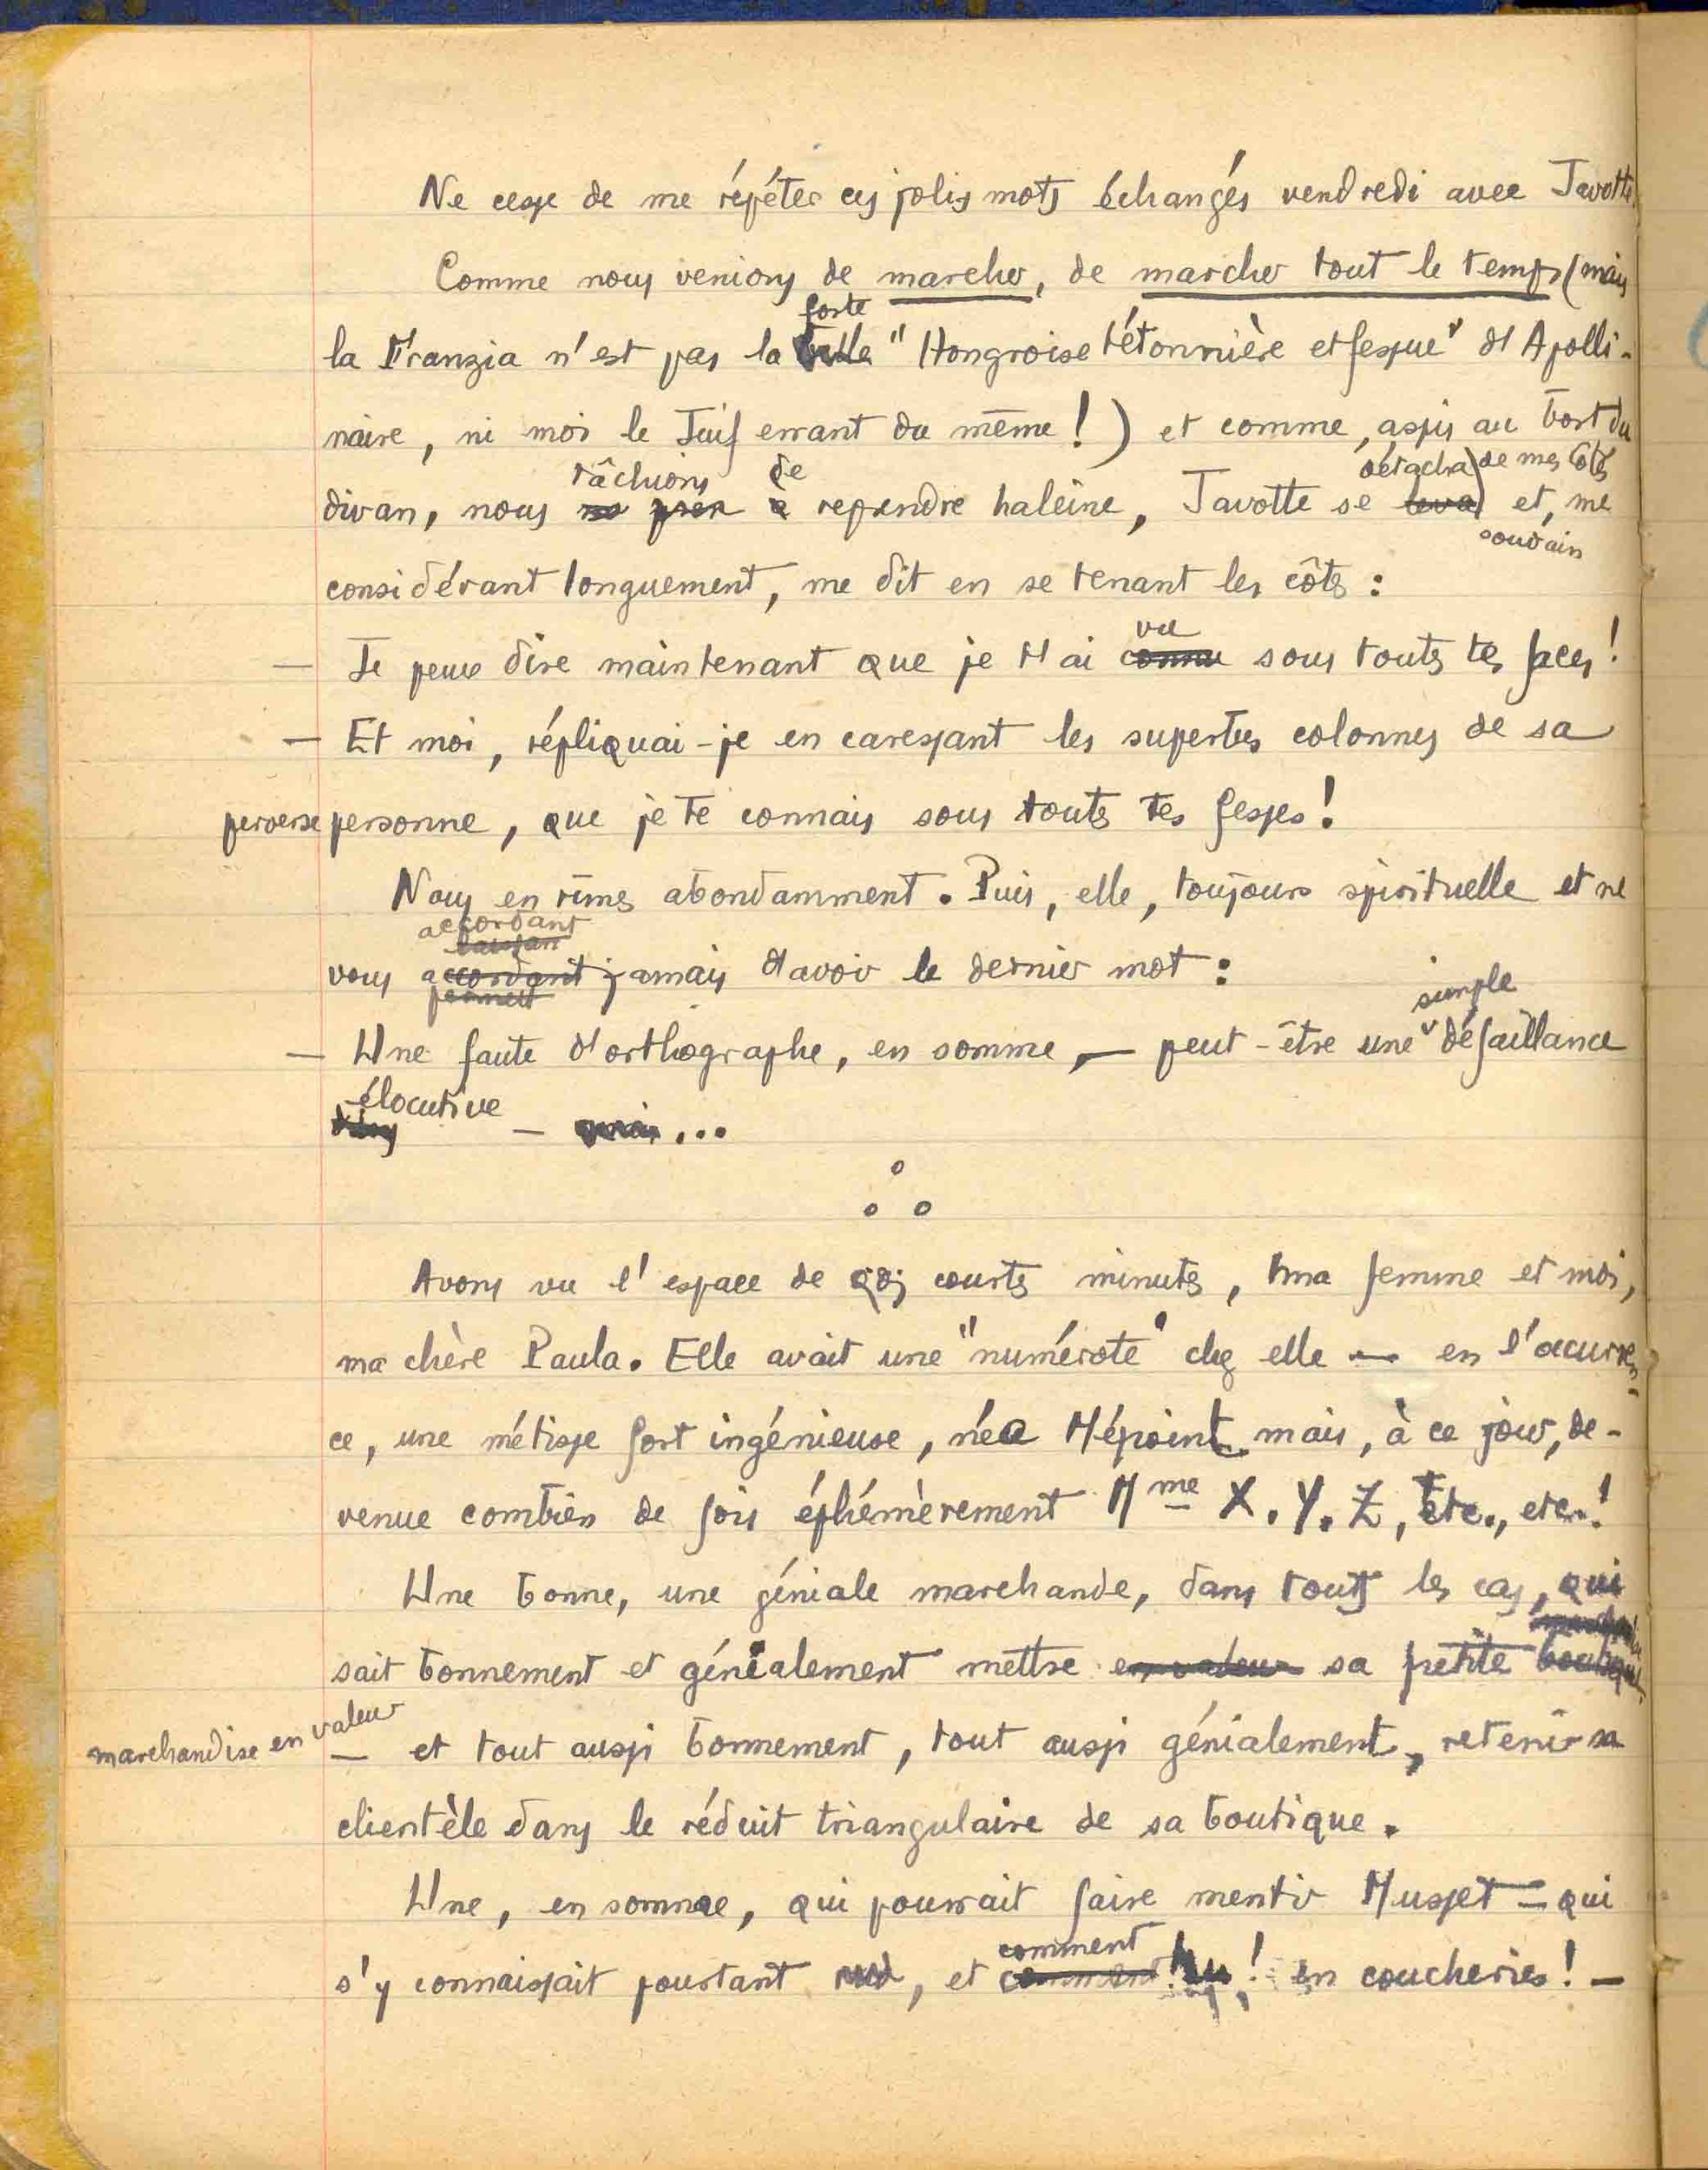 Ne cesse de me répéter ces jolis mots échangés vendredi avec Javotte.
Comme nous venions de marcher, de marcher tout le temps (mais
forte
la Franzia n'est pas la belle "Hongroise tétonnière et fessue" d'Apolli-
naire, ni moi le Juif errant du même !) et comme, assis au bord du
tâchions de détacha de mes côtés
divan, nous à reprendre haleine, Javotte se leva et, me
soudain
considérant longuement, me dit en se tenant les côtes :
vu
— Je peux dire maintenant que je t'ai connu sous toutes tes faces !
— Et moi, répliquai-je en caressant les superbes colonnes de sa
perverse personne, que je te connais sous toutes tes fesses !
Nous en rîmes abondamment. Puis, elle, toujours spirituelle et ne
accordant
laissan
vous accordant jamais d'avoir le dernier mot :
permett
simple
— Une faute d'orthographe, en somme, — peut-être une défaillance
élocutive
— ...
Avons vu l'espace de qqs courtes minutes, ma femme et moi,
ma chère Paula. Elle avait une "numérote" chez elle — en l'occurren-
ce, une métisse fort ingénieuse, née Mépoint mais, à ce jour, de-
venue combien de fois éphémèrement Mme X. Y. Z, etc., etc. !
Une bonne, une géniale marchande, dans touts les cas, qui
sait bonnement et génialement mettre en valeur sa petite boutique
marchandise en valeur
— et tout aussi bonnement, tout aussi génialement, retenir sa
clientèle dans le réduit triangulaire de sa boutique.
Une, en somme, qui pourrait faire mentir Musset — qui
comment
s'y connaissait pourtant, et comment ! en coucheries ! —